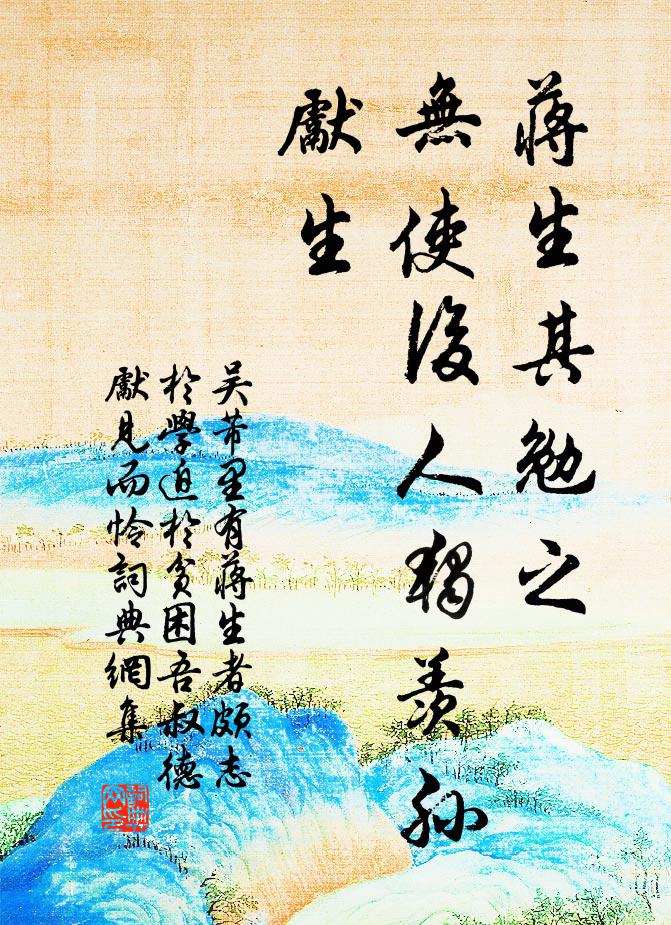 蔣生其勉之
無使後人獨羨孫
獻生
吴芾里有蔣生者頗志
於學迫於貧困吾叔德
獻見而憐詞典網集